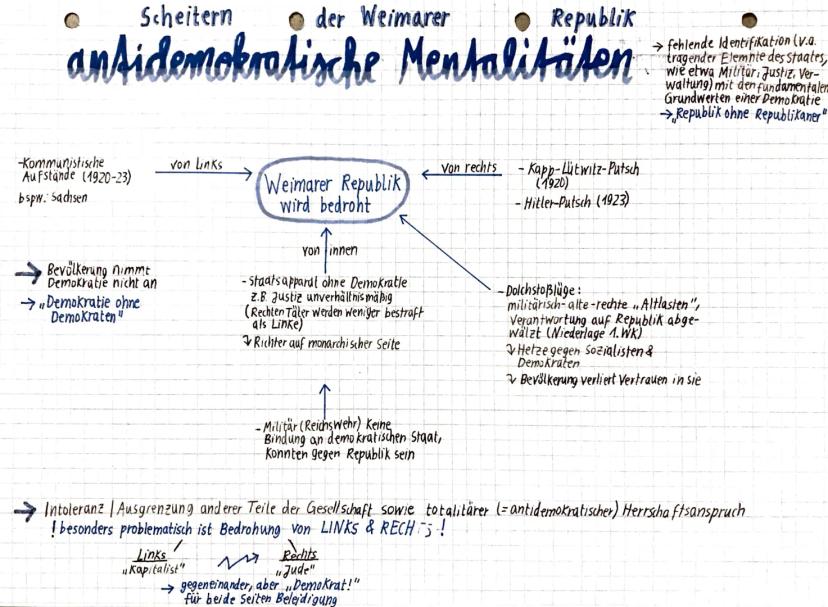 Scheitern der Weimarer Republik
antidemokratische Mentalitäten
→ fehlende Identifikation (v.a.
tragender Elemnte des Staates,
wie etwa Militär, Justiz, Ver-
waltung) mit den fundamentalen
Grundwerten einer Demokratie
→ „Republik ohne Republikaner"
-Kommunistische
Aufstände (1920-23)
bspw. Sachsen
von Links
Weimarer Republik
wird bedroht
von rechts
- Kapp-Lütwitz-Putsch
(1920)
- Hitler-Putsch (1923)
→ Bevölkerung nimmt
Demokratie nicht an
→ „Demokratie ohne
Demokraten"
von innen
-Staatsapparat ohne Demokratie
z.B. Justiz unverhältnismäßig
(Rechten Täter werden weniger bestraft
als Linke)
↳ Richter auf monarchischer Seite
-Dolchstoßlüge:
militärisch-alte-rechte „Altlasten",
Verantwortung auf Republik abge-
wälzt (Niederlage 1. WK)
↳ Hetze gegen Sozialisten &
Demokraten
↳ Bevölkerung verliert Vertrauen in sie
-Militär (Reichswehr) keine
Bindung an demokratischen Staat,
konnten gegen Republik sein
→ Intoleranz / Ausgrenzung anderer Teile der Gesellschaft sowie totalitärer (= antidemokratischer) Herrschaftsanspruch
! besonders problematisch ist Bedrohung von LINKS & RECHTS !
Links Rechts
„Kapitalist" „Jude"
→ gegeneinander, aber „Demokrat!"
für beide Seiten Beleidigung